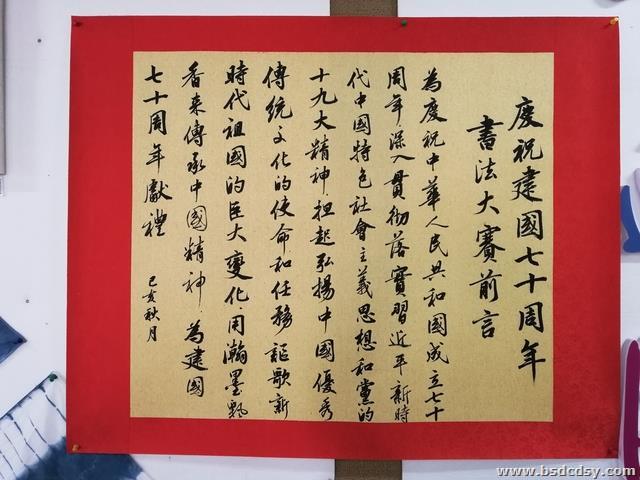 慶祝建國七十周年
書法大賽前言
為慶祝中華人民共和國成立七十
周年·深入貫彻落實習近平新時
代中國特色社會主義思想和黨的
十九大精神担起弘揚中國優秀
傳統文化的使命和任務謳歌新
時代祖國的臣大變化·用瀚墨飄
香来傳承中國精神·為建國
七十周年獻禮
己亥秋月
www.bsdcdsy.com